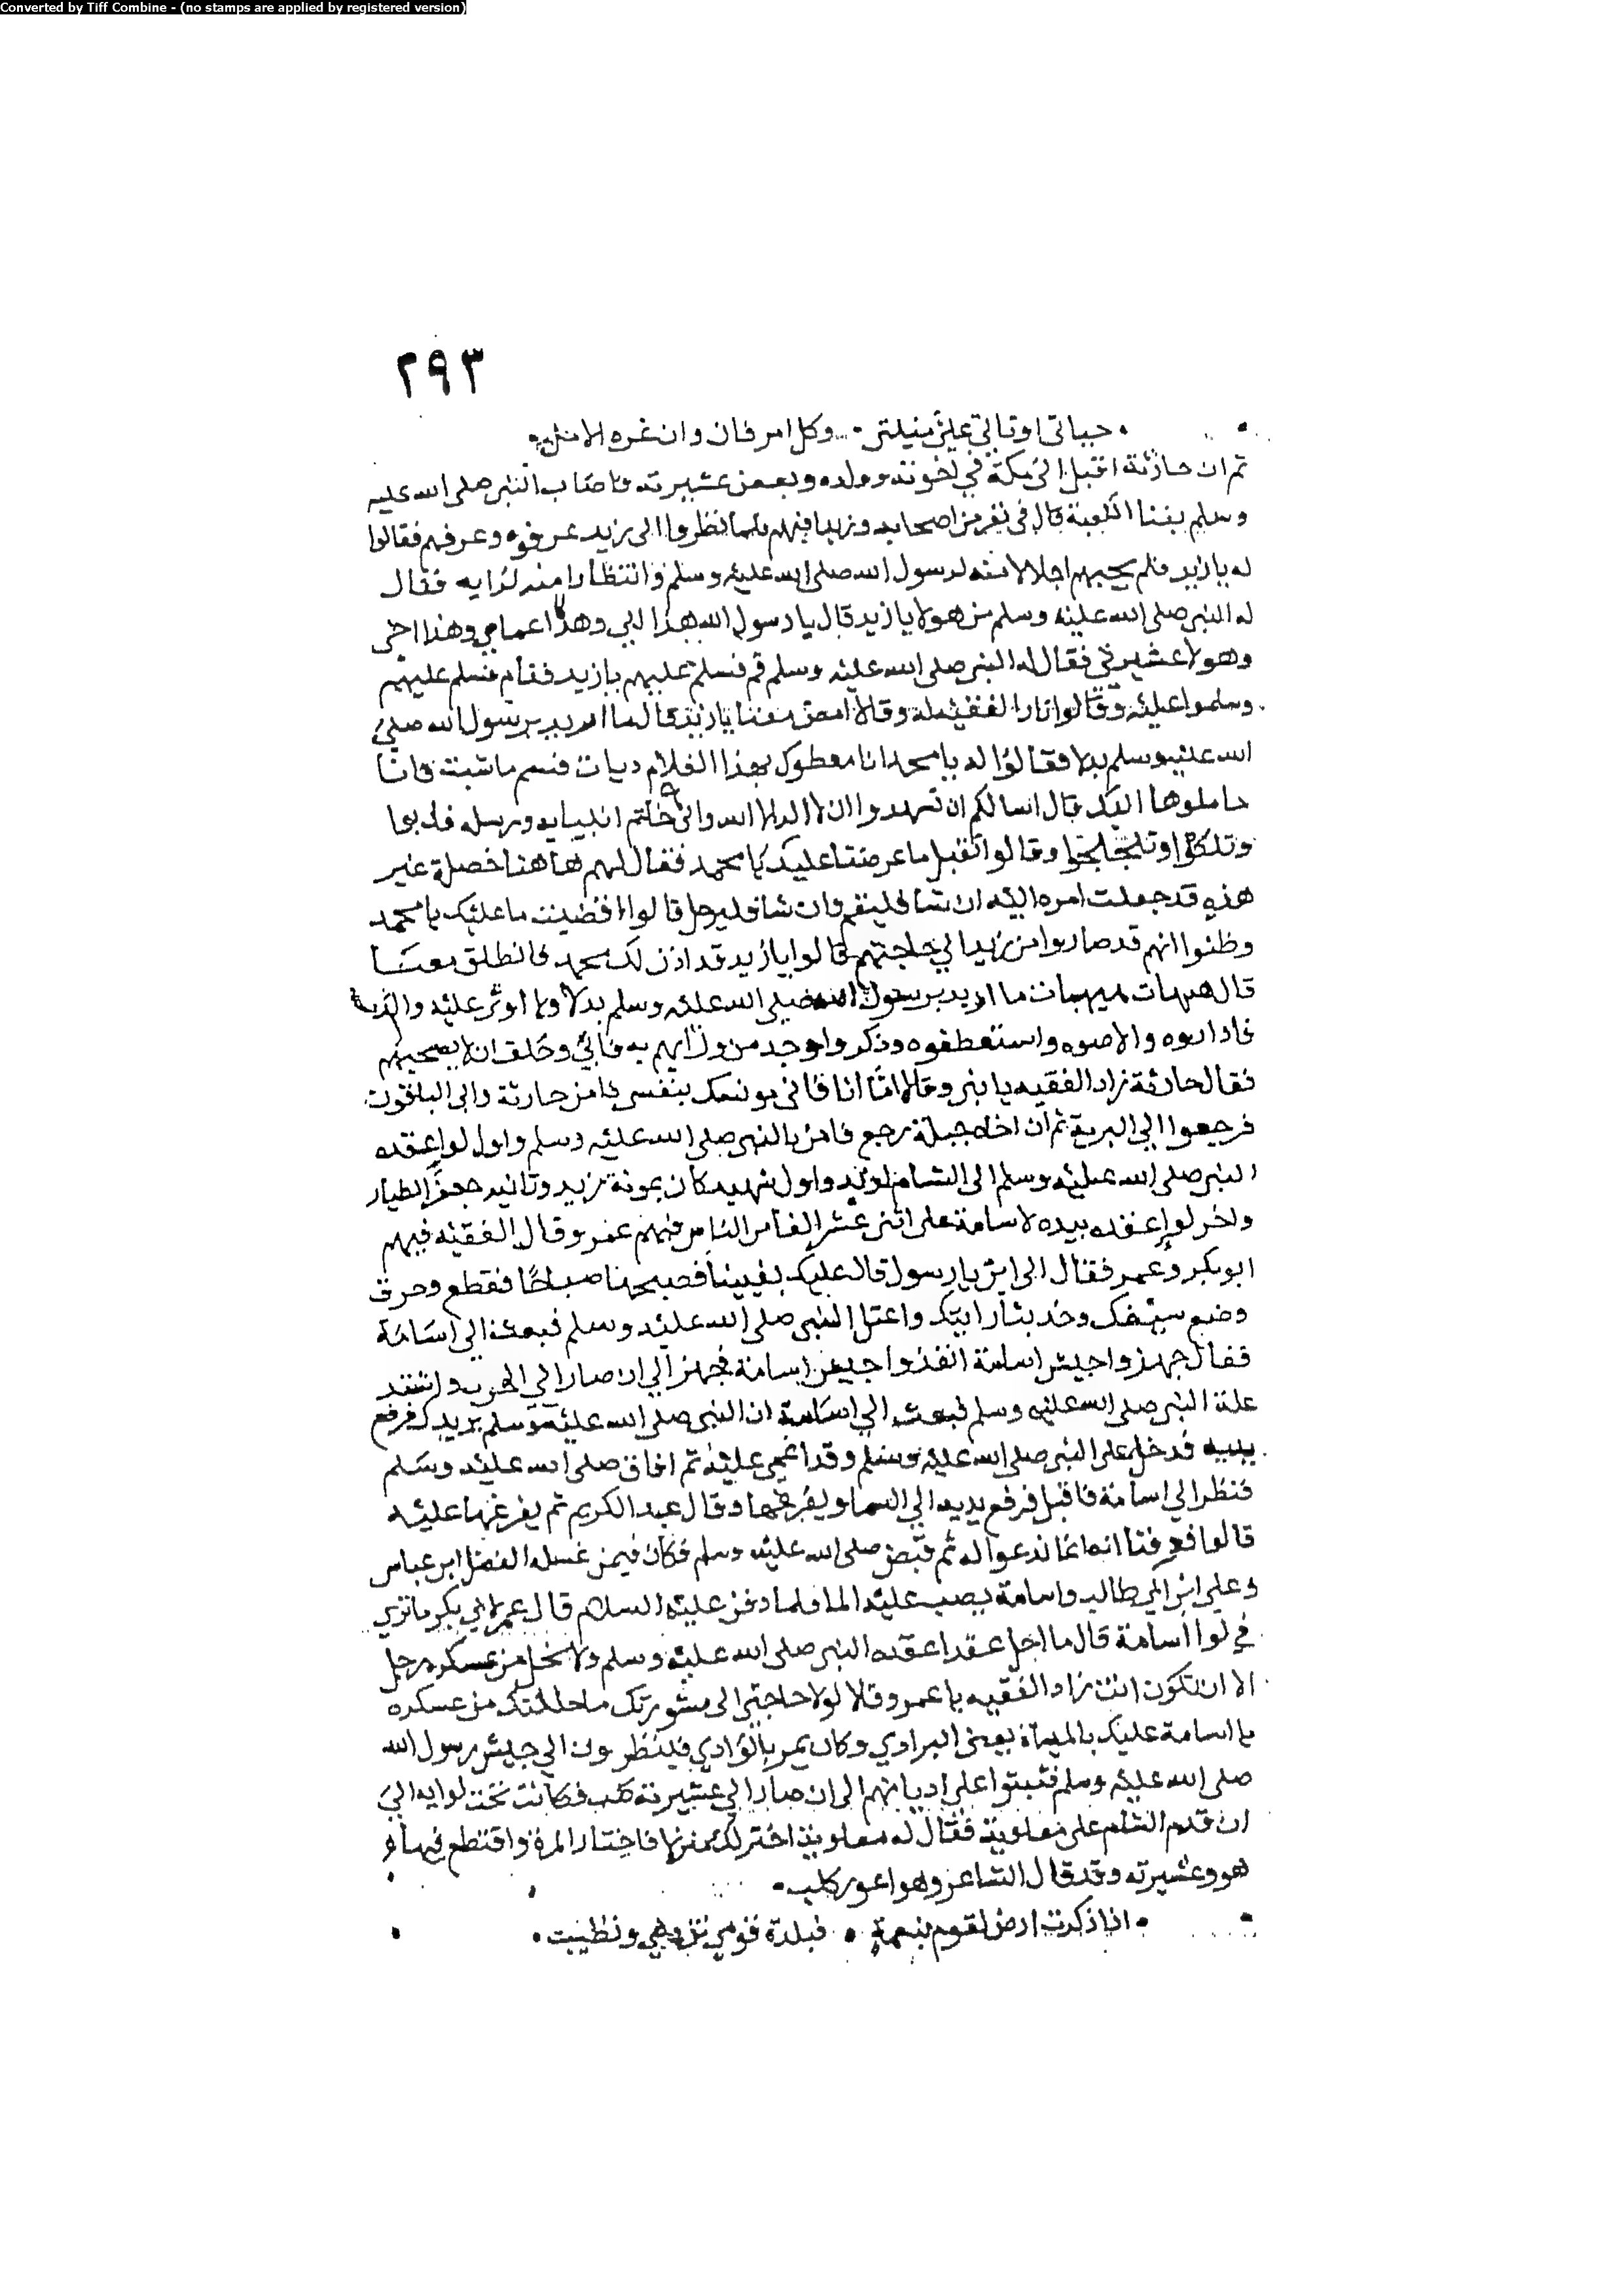 Converted by Tiff Combine - (no stamps are applied by registered version)
٢٩٣
حياتي او تاتي علي منيتي وكل امر فان وان غره الامل
ثم ان حارثة اقبل الى مكة في اخوته وولده وبعض عشيرته فاصاب النبي صلى الله عليه
وسلم بفنا الكعبة قال في نفر من اصحابه وزيد فيهم فلما نظروا الى زيد عرفوه وعرفهم فقالوا
له يا زيد فلم يجبهم اجلالا منه لرسول الله صلى الله عليه وسلم وانتظارا منه لرايه فقال
له النبي صلى الله عليه وسلم من هولا يا زيد قال يا رسول الله هذا ابي وهذا اعمامي وهذا اخي
وهولا عشيرتي فقال له النبي صلى الله عليه وسلم قم فسلم عليهم يا زيد فقام فسلم عليهم
وسلموا عليه وقالوا زاد الفقيه له وقالا امض معنا يا زيد قال ما اريد برسول الله صلى
الله عليه وسلم بدلا فقالوا له يا محمد انا معطوك بهذا الغلام ديات فسم ما شيت فانا
حاملوها اليك قال اسالكم ان تشهدوا ان لا اله الا الله واني خاتم انبيايه ورسله فابوا
وتلكوا وتلجلجوا وقالوا تقبل ما عرضنا عليك يا محمد فقال لهم هاهنا خصلة غير
هذه قد جعلت امره اليه ان شا فليقم وان شا فليرحل قالوا اقضيت ما عليك يا محمد
وظنوا انهم قد صاروا من زيد الى حاجتهم قالوا يا زيد قد اذن لك محمد فانطلق معنا
قال هيهات هيهات ما اريد برسول الله صلى الله عليه وسلم بدلا ولا اوثر عليه والدا
فاداروه والاصوه واستعطفوه وذكروا وجد من ورايهم به فابى وحلف ان لا يصحبهم
فقال حارثة زاد الفقيه يا بني وقالا اما انا فاني مونسك بنفسي فامن حارثة وابى الباقون
فرجعوا الى البرية ثم ان اخاه جبلة رجع فامن بالنبي صلى الله عليه وسلم واول لوا عقده
النبي صلى الله عليه وسلم الى الشام لزيد واول شهيد كان بموتة زيد وثانيه جعفر الطيار
واخر لوا عقده بيده لاسامة على اثنى عشر الفا من الناس فيهم عمر وقال الفقيه فيهم
ابو بكر وعمر فقال الى اين يا رسول قال عليك بيبنا فصبحها صباحا فقطع وحرق
وضع سيفك وخذ بثار ابيك واعتل النبي صلى الله عليه وسلم فبعث الى اسامة
فقال جهزوا جيش اسامة انفذوا جيش اسامة فجهز الى ان صار الى الجرف واشتد
علة النبي صلى الله عليه وسلم فبعث الى اسامة ان النبي صلى الله عليه وسلم يريدك فرجع
فدخل على النبي صلى الله عليه وسلم وقد اغمي عليه ثم افاق صلى الله عليه وسلم
فنظر الى اسامة فاقبل فرفع يديه الى السما ويفرغها وقال عبد الكريم ثم يفرغها عليه
قالوا فعرفنا انه انما ندعوا له ثم قبض صلى الله عليه وسلم فكان فيمن غسله الفضل ابن عباس
وعلي ابن ابي طالب واسامة يصب عليه الما فلما دفن عليه السلام قال عمر لابي بكر ما تري
في لوا اسامة قال ما احل عقدا عقده النبي صلى الله عليه وسلم ولا نحل من عسكره رجل
الا ان تكون انت زاد الفقيه يا عمر وقالا لولا حاجتي الى مشورتك ما حللتك من عسكره
يا اسامة عليك بالمياة يعنى البوادي وكان يمر بالوادي فينظرون الى جيش رسول الله
صلى الله عليه وسلم فثبتوا على اديانهم الى ان صار الى عشيرته كلب فكانت تحت لوايه الى
ان قدم الشام على معاوية فقال له معاوية اختر لك منزلا فاختار المزة واقتطع فيها
هو وعشيرته وقد قال الشاعر وهو اعور كلب
اذا ذكرت ارض لقوم بنعمة فبلدة قومي تزدهي وتطيب